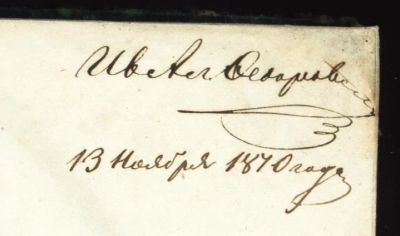 Ив Ал Өедоровъ
13 Ноября 1870 года